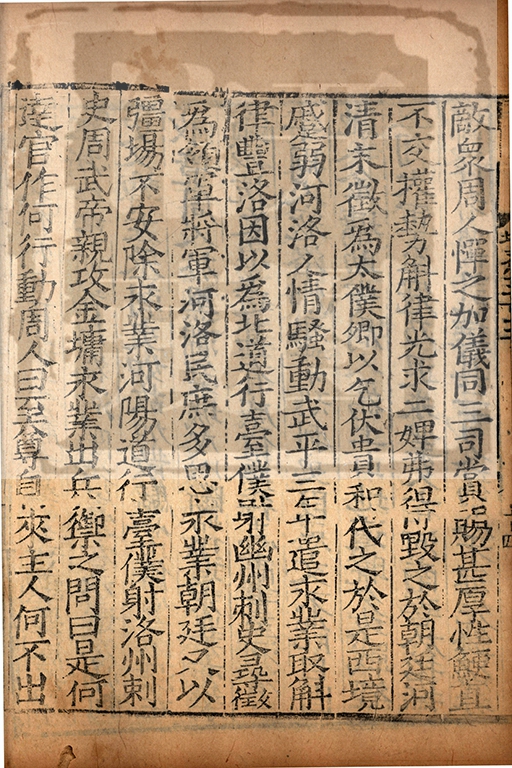 敵衆周人憚之加儀同三司賞賜甚厚性鯁直
不交權勢斛律光求二婢弗得毀之於朝廷河
清末徵爲太僕卿以乞伏貴和代之於是西境
蹙弱河洛人情騷動武平三年遣永業取斛
律豐洛因以爲北道行臺僕射幽州刺史尋徵
爲領軍將軍河洛民庶多思永業朝廷又以
疆埸不安除永業河陽道行臺僕射洛州刺
史周武帝親攻金墉永業出兵禦之問曰是何
達官作何行動周人曰至尊自來主人何不出